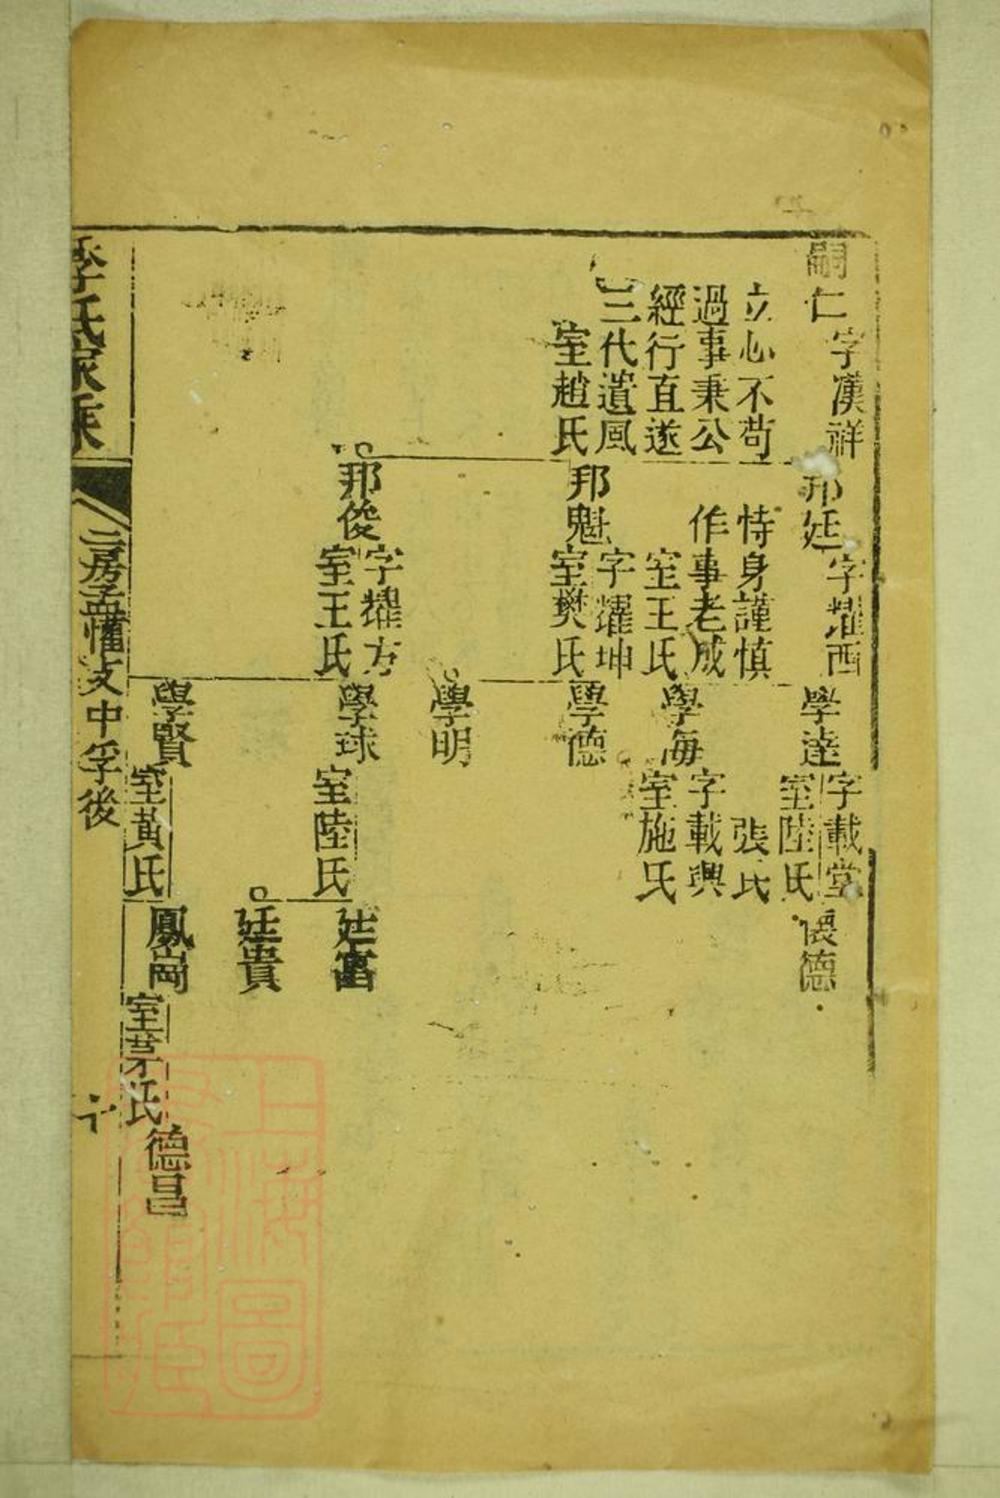 嗣仁
字漢祥
立心不苟
過事秉公
經行直遂
三代遺風
室趙氏
邦廷
字耀西
恃身謹慎
作事老成
室王氏
邦魁
字耀坤
室樊氏
邦俊
字耀方
室王氏
學達
字載堂
室陸氏
張氏
學海
字載興
室施氏
學德
學明
學球
室陸氏
學賢
室黃氏
德
廷富
廷貴
鳳崗
室茅氏
德昌
李氏家乘
二房孟懽文中孚後
十
上海圖